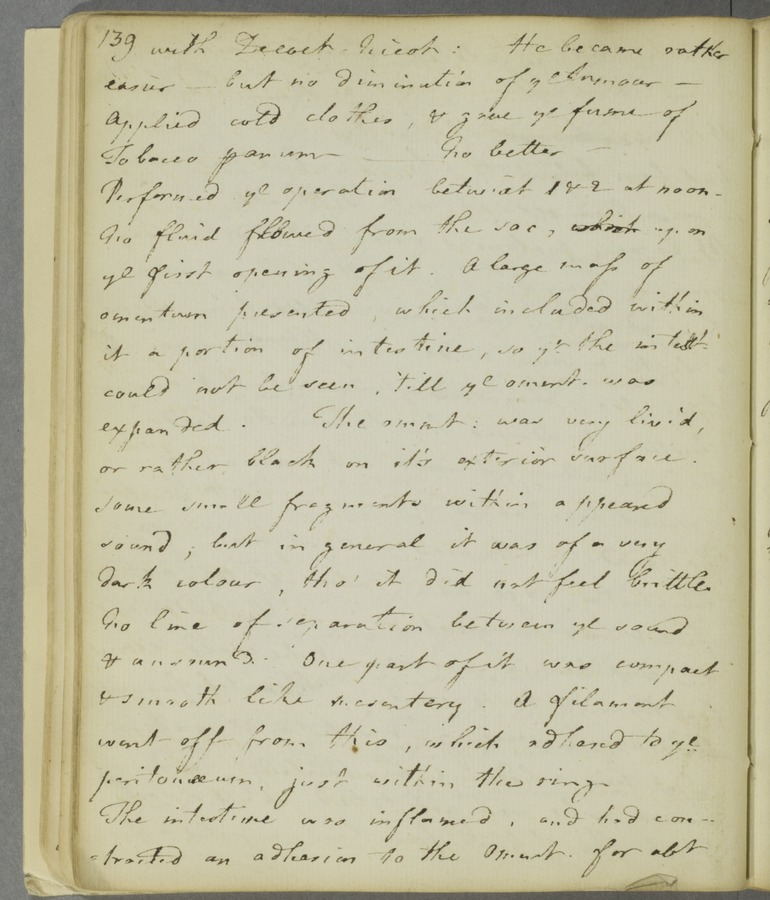 139 with Decoct. Nicot: He became rather
easier — but no diminution of ye tumour —
Applied cold clothes, & gave ye fume of
Tobacco parum — No better —
Performed ye operation betwixt 1 & 2 at noon —
No fluid flowed from the sac, which upon
ye first opening of it. A large mass of
omentum presented, which included within
it a portion of intestine, so yt the intest:
could not be seen, 'till ye oment. was
expanded. The oment: was very livid,
or rather black on it's exterior surface.
some small fragments within appeared
sound; but in general it was of a very
dark colour, tho' it did not feel brittle
No line of separation between ye sound
& unsound. One part of it was compact
& smooth like mesentery. A filament
went off from this, which adhered to ye
peritonaeum, just within the ring
The intestine was inflamed, and had con-
-tracted an adhesion to the Oment. for abt